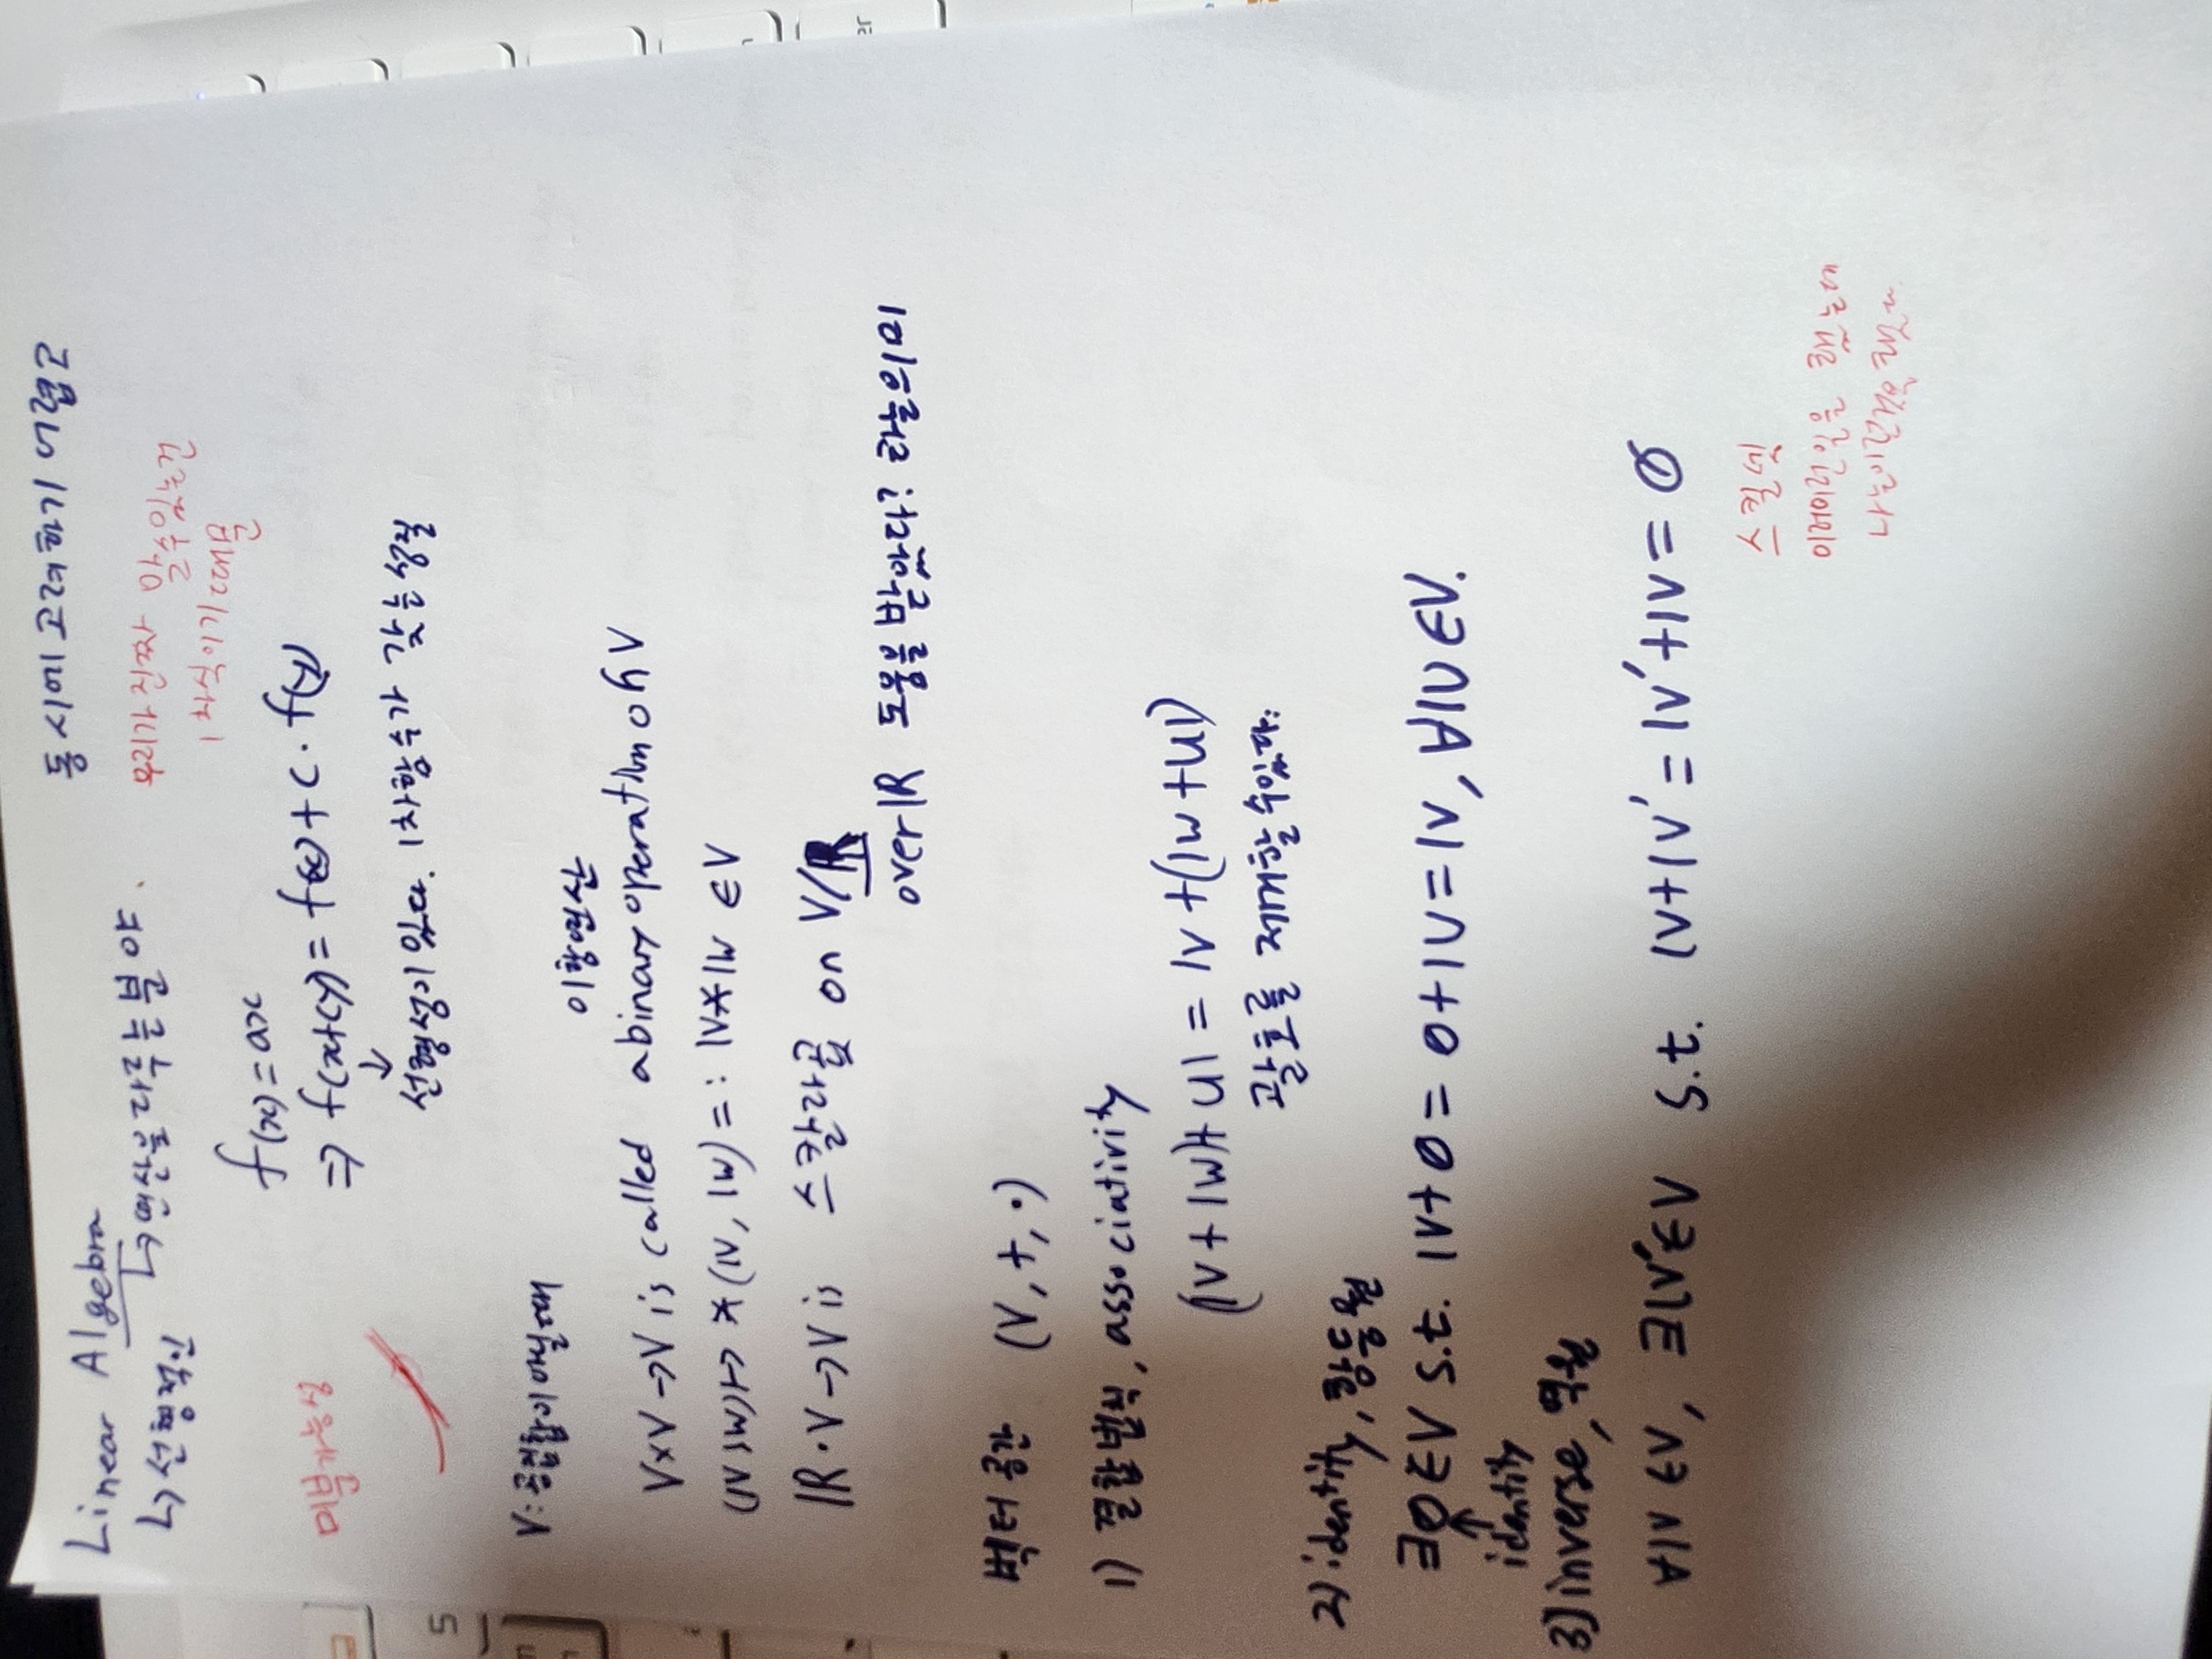 동시에 고려하기 어렵고
Linear Algebra
↳ 선형적인 ↳ 연산을 다루는 분야.
우리가 진짜 알수있는건
1차식이기 때문
f(x) = ax
⇒ f(x+cy) = f(x) + c · f(y)
미분가능성
↓
선형성이 있다. 1차함수가 갖는 성질
V: 공집합이 아닐때
이항연산
V×V→V is called a binary operation on V
(𝕧, 𝕨) ↦ *(𝕧, 𝕨) =: 𝕧*𝕨 ∈ V
ℝ·V→V is 스칼라곱 on V/ℝ
over ℝ 도움을 받았다? 라는의미
벡터 공간 (V, +, ·)
1) 결합법칙, associativity
(𝕧 + 𝕨) + 𝕦 = 𝕧 + (𝕨 + 𝕦)
괄호를 제거할 수있다.
2) identity, 항등원
∃𝟘 ∈ V s.t. 𝕧 + 𝟘 = 𝟘 + 𝕧 = 𝕧, ∀𝕧 ∈ V.
↑
identity
3) inverse, 역원
∀𝕧 ∈ V, ∃𝕧′ ∈ V s.t. 𝕧 + 𝕧′ = 𝕧′ + 𝕧 = 𝟘
스킬셋
일을 했는데